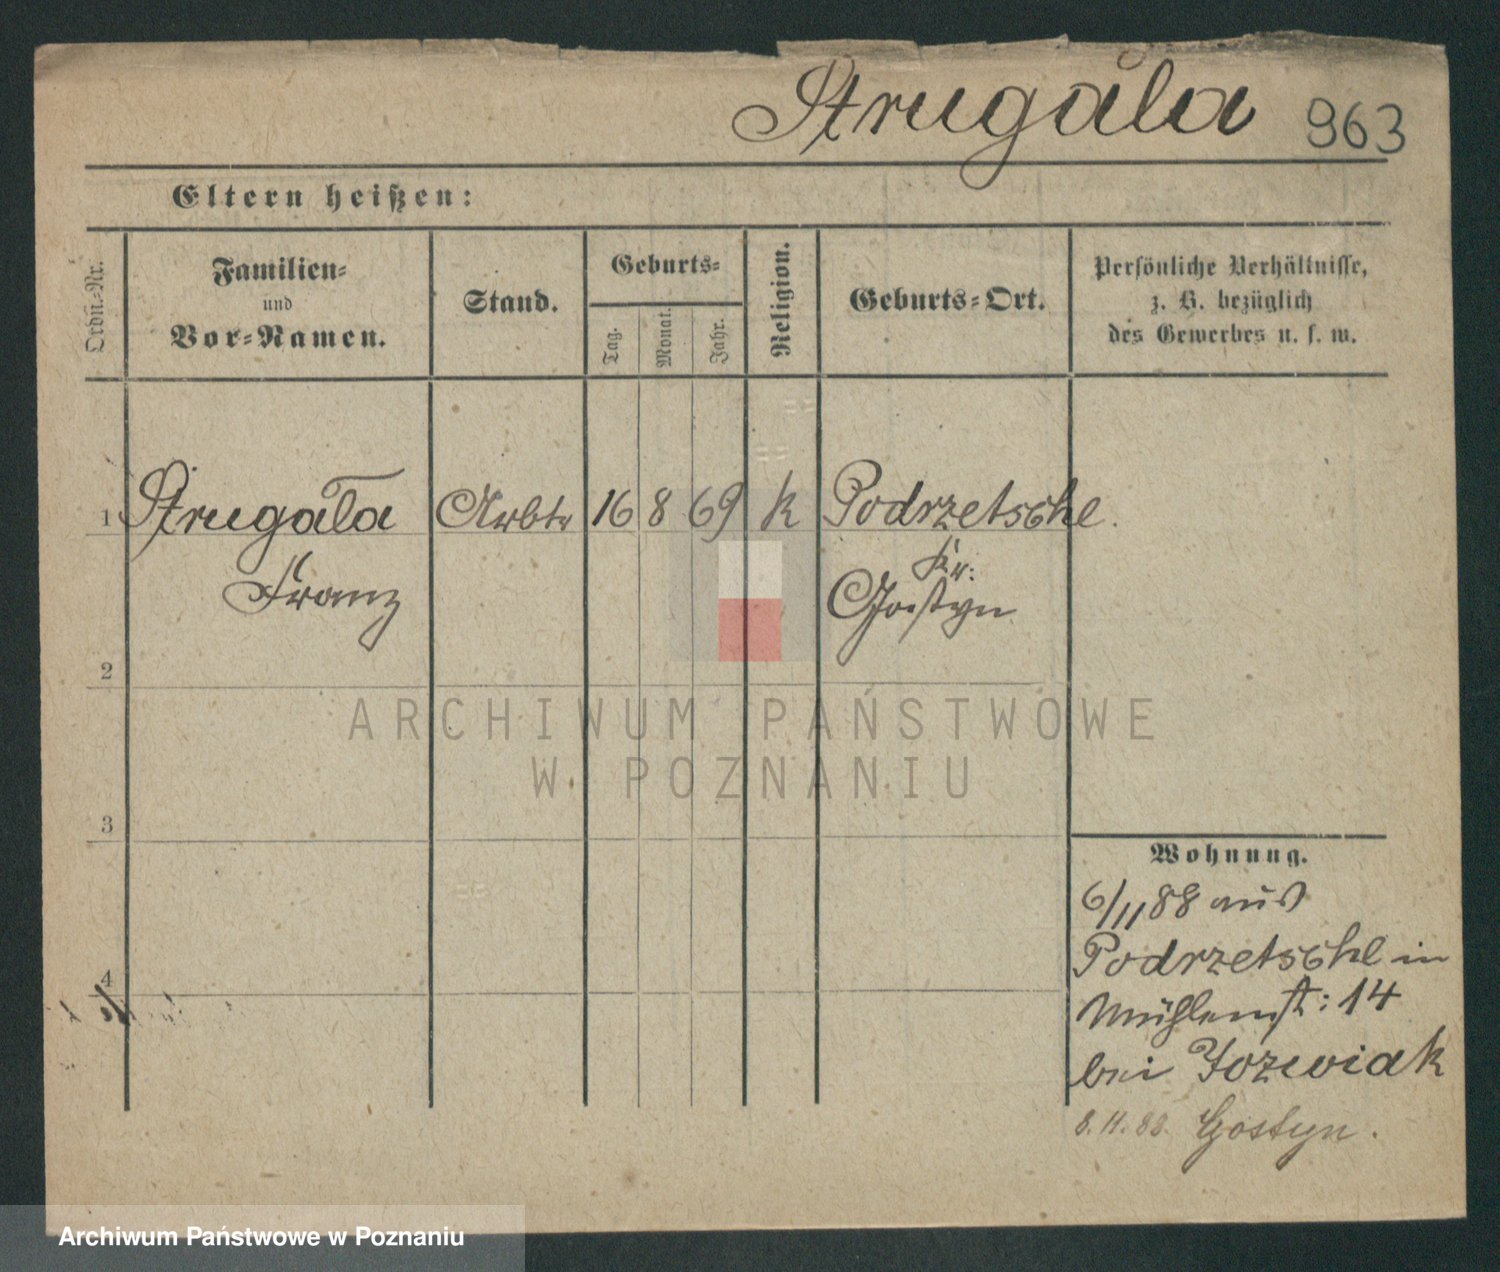 Strugala 963
Eltern heißen:
Ordn.-Nr.
Familien-
und
Vor-Namen.
Stand.
Geburts-
Tag.
Monat.
Jahr.
Religion.
Geburts-Ort.
Persönliche Verhältnisse,
z. B. bezüglich
des Gewerbes u. s. w.
1 Strugala Arbtr 16 8 69 k Podrzetsche.
Franz
Kr:
Gostyn
2
3
4
Wohnung.
6/11 88 aus
Podrzetsche in
Mühlenst: 14
bei Jozewiak
8.11.88 Gostyn.
ARCHIWUM PAŃSTWOWE
W POZNANIU
Archiwum Państwowe w Poznaniu